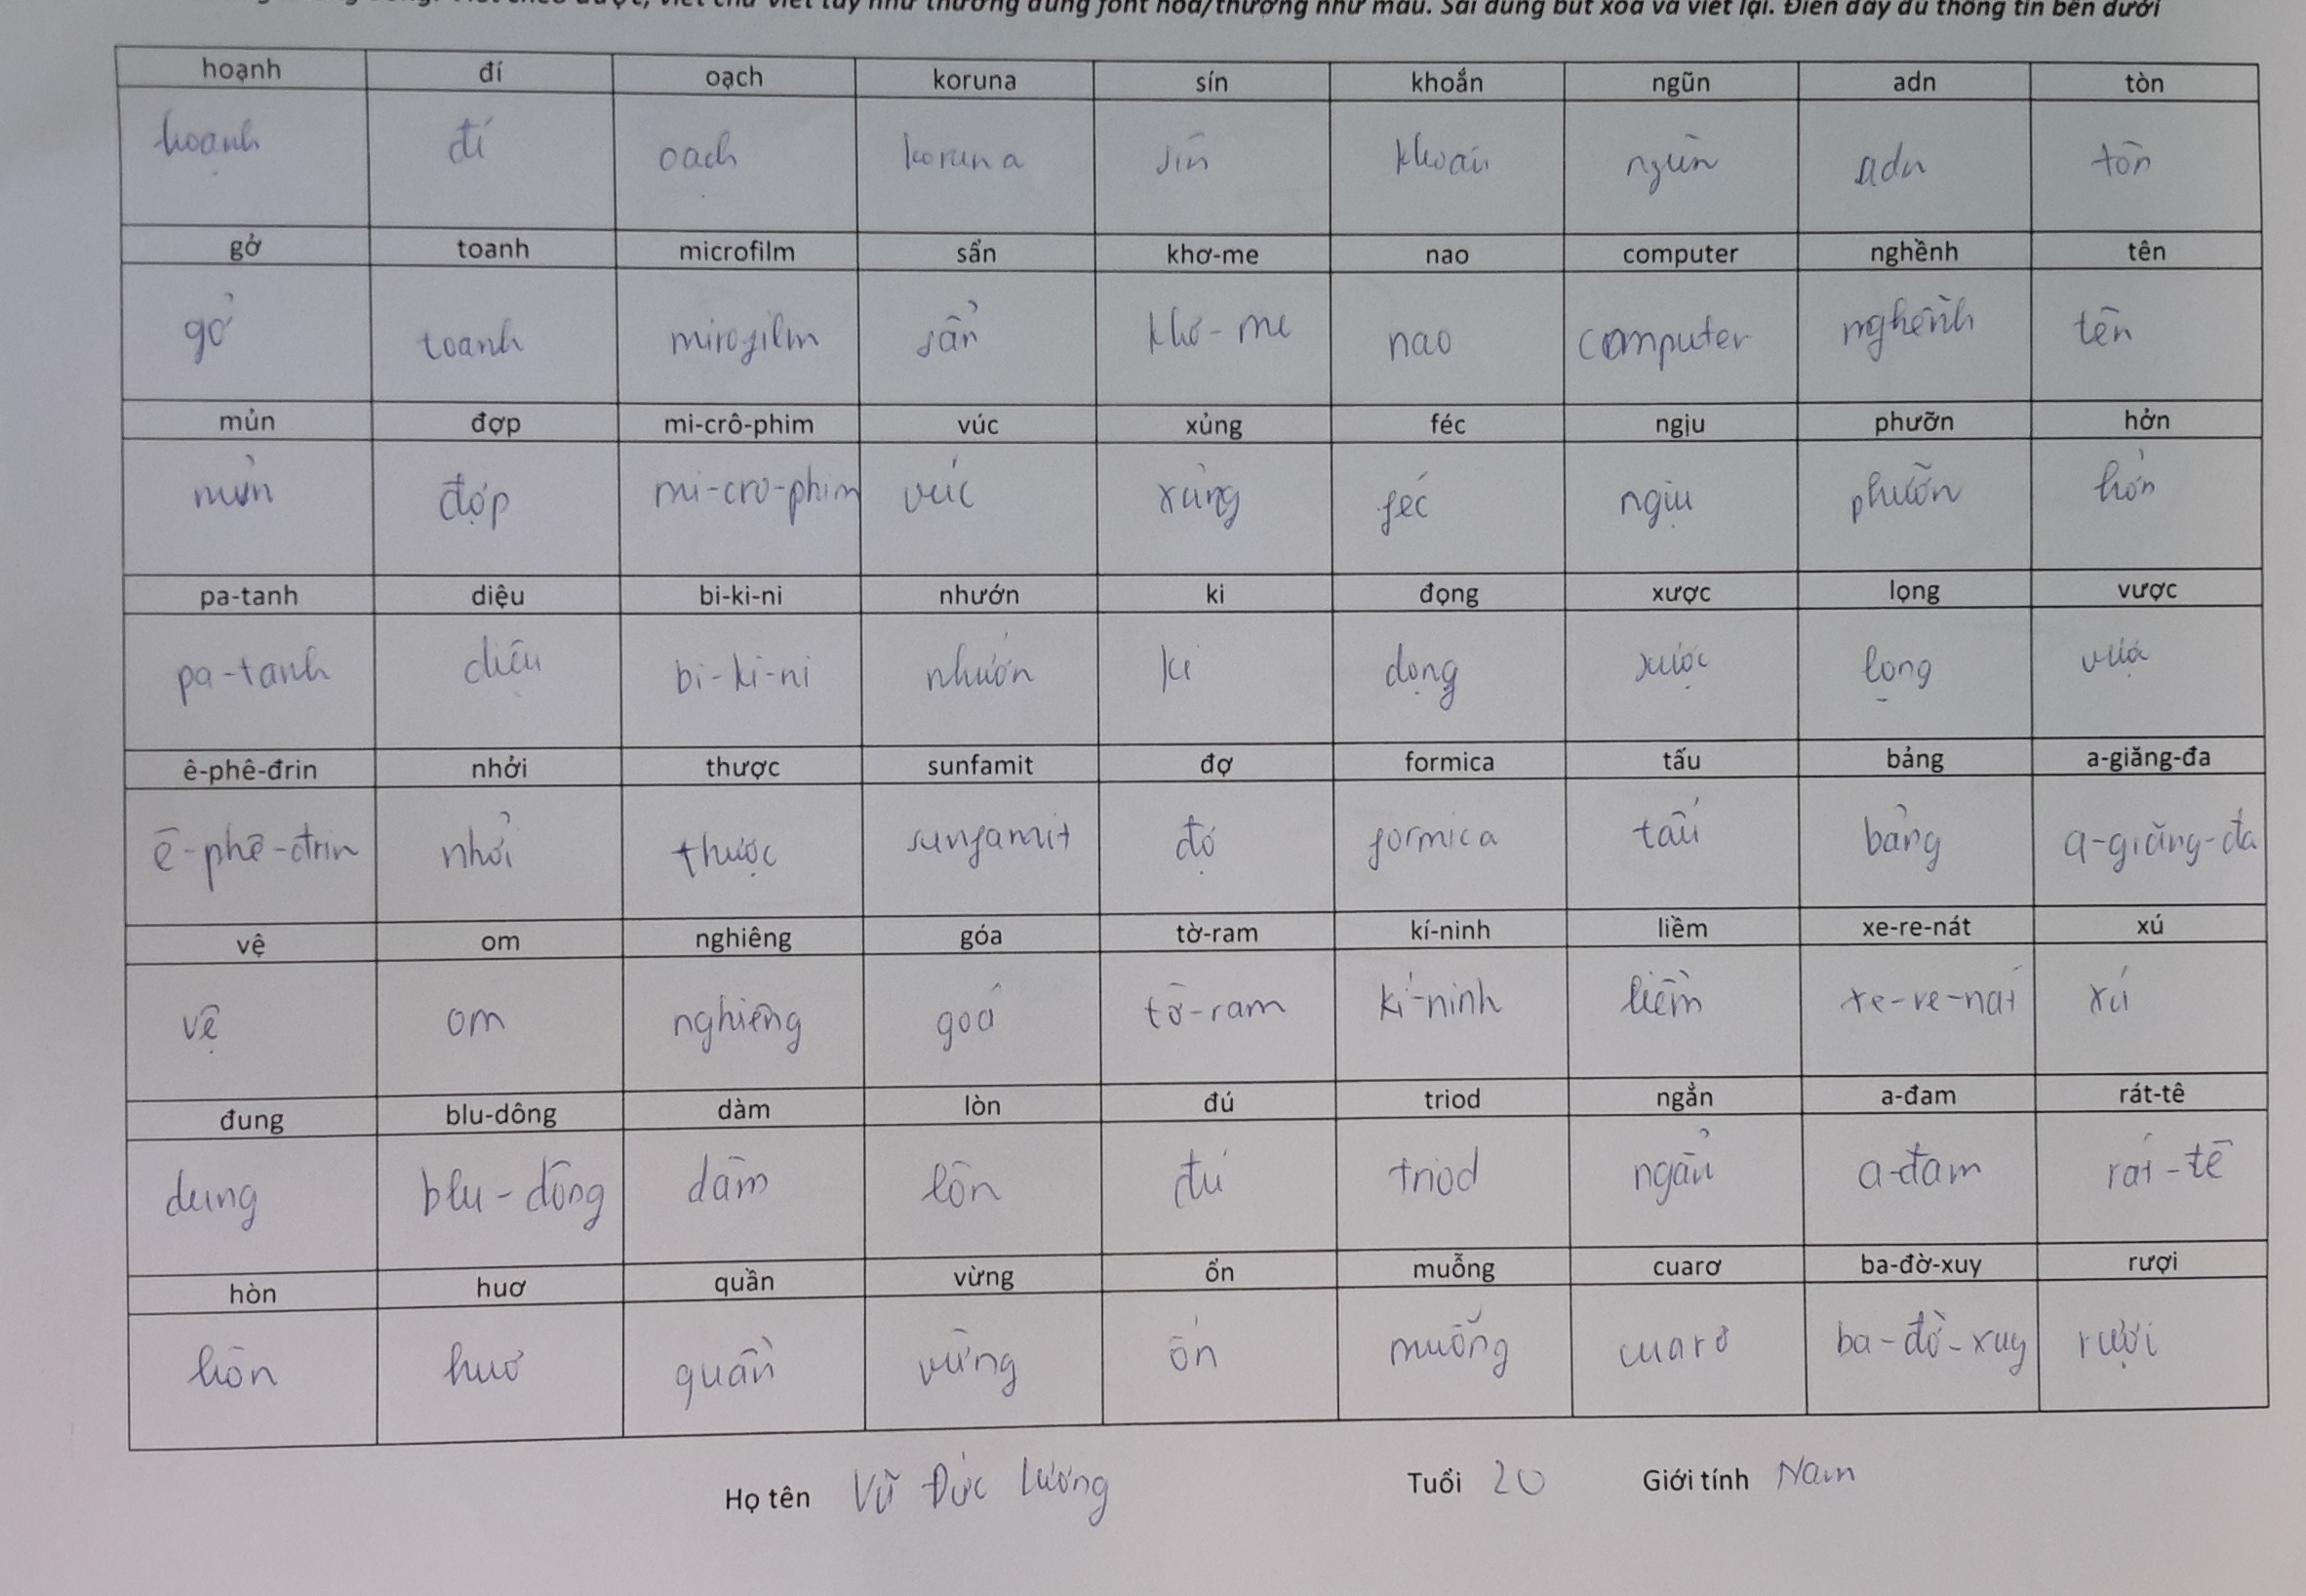 viết chữ viết tay như thường dùng font hoa/thường như mẫu. Sai dùng bút xóa và viết lại. Điền đầy đủ thông tin bên dưới
hoạnh đí oạch koruna sín khoắn ngũn adn tòn
hoạnh đí oạch koruna sín khoắn ngũn adn tòn
gở toanh microfilm sẩn khơ-me nao computer nghềnh tên
gở toanh mirofilm sẩn khơ-me nao computer nghềnh tên
mủn đợp mi-crô-phim vúc xủng féc ngịu phưỡn hởn
mủn đợp mi-cro-phim vúc xủng féc ngịu phưỡn hởn
pa-tanh diệu bi-ki-ni nhướn ki đọng xược lọng vược
pa-tanh diệu bi-ki-ni nhướn ki dọng xược lọng
ê-phê-đrin nhởi thược sunfamit đợ formica tấu bảng a-giăng-đa
ê-phê-đrin nhởi thược sunfamit đợ formica tấu bảng a-giăng-đa
vệ om nghiêng góa tờ-ram kí-ninh liềm xe-re-nát xú
vệ om nghiêng goá tờ-ram kí-ninh liềm xe-re-nát xú
đung blu-dông dàm lòn đú triod ngẳn a-đam rát-tê
dung blu-dông dàm lòn đú triod ngẳn a-đam rát-tê
hòn huơ quần vừng ổn muỗng cuarơ ba-đờ-xuy rượi
hòn huơ quần vừng ổn muỗng cuarơ ba-đờ-xuy rượi
Họ tên Vũ Đức Lương Tuổi 20 Giới tính Nam